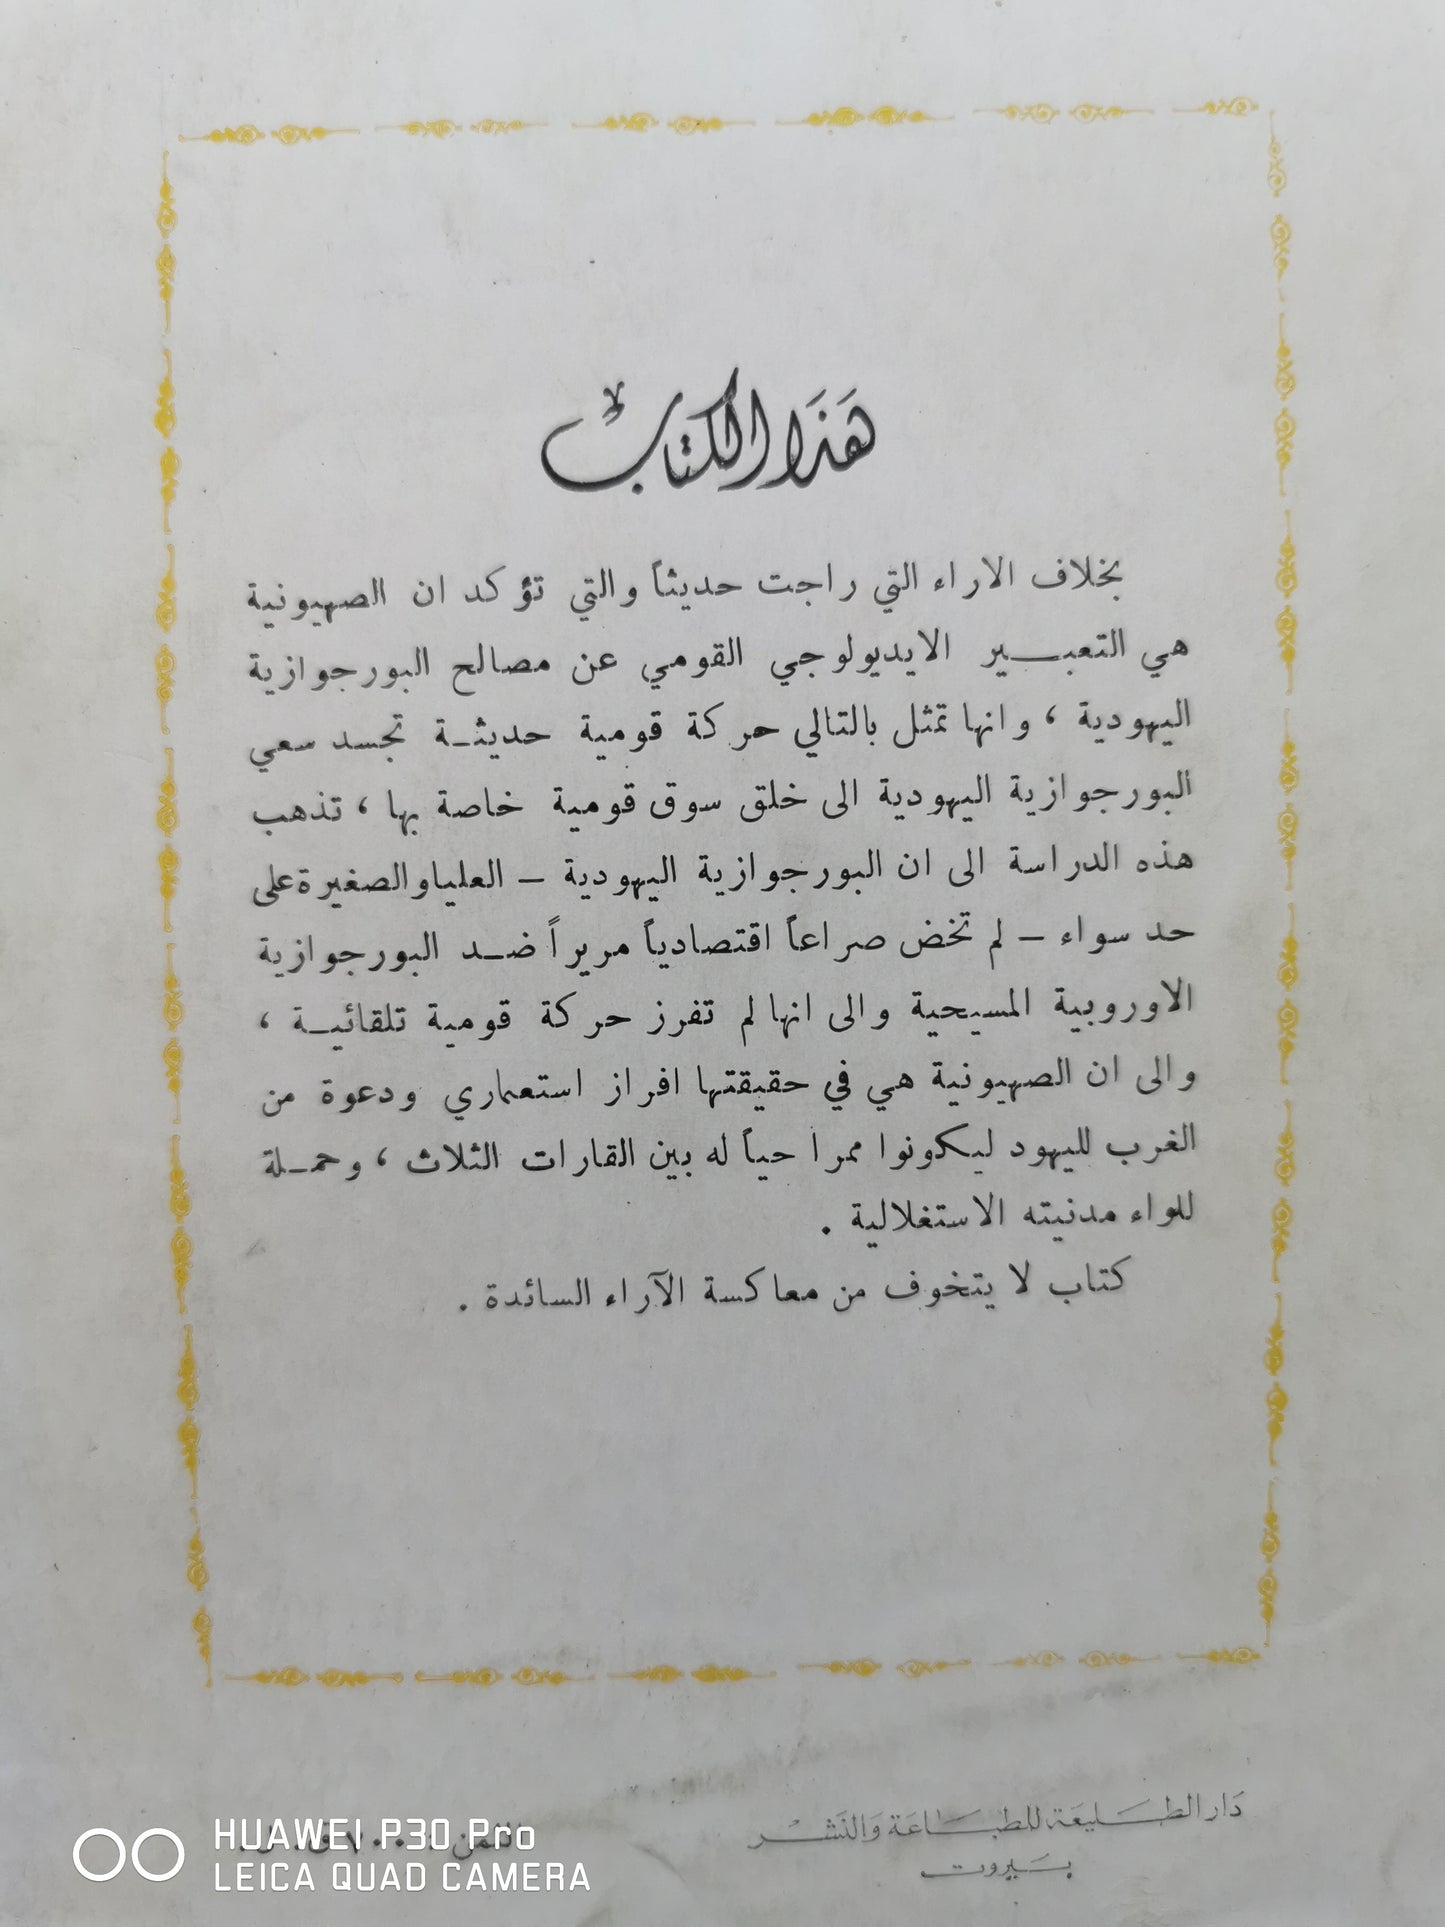 هَذَا الكتابُ
بخلاف الاراء التي راجت حديثاً والتي تؤكد ان الصهيونية
هي التعبـــير الايديولوجي القومي عن مصالح البورجوازية
اليهودية ، وانها تمثل بالتالي حركة قومية حديثـة تجسد سعي
البورجوازية اليهودية الى خلق سوق قومية خاصة بها ، تذهب
هذه الدراسة الى ان البورجوازية اليهودية – العليا والصغيرة على
حد سواء – لم تخض صراعاً اقتصادياً مريراً ضـد البورجوازية
الاوروبية المسيحية والى انها لم تفرز حركة قومية تلقائيـة ،
والى ان الصهيونية هي في حقيقتها افراز استعماري ودعوة من
الغرب لليهود ليكونوا ممرا حياً له بين القارات الثلاث ، وحمـلة
للواء مدنيته الاستغلالية .
كتاب لا يتخوف من معاكسة الآراء السائدة .
دَار الطـليعَة للطبـَاعَة وَالنَشـْر
بـَيروت
HUAWEI P30 Pro
LEICA QUAD CAMERA